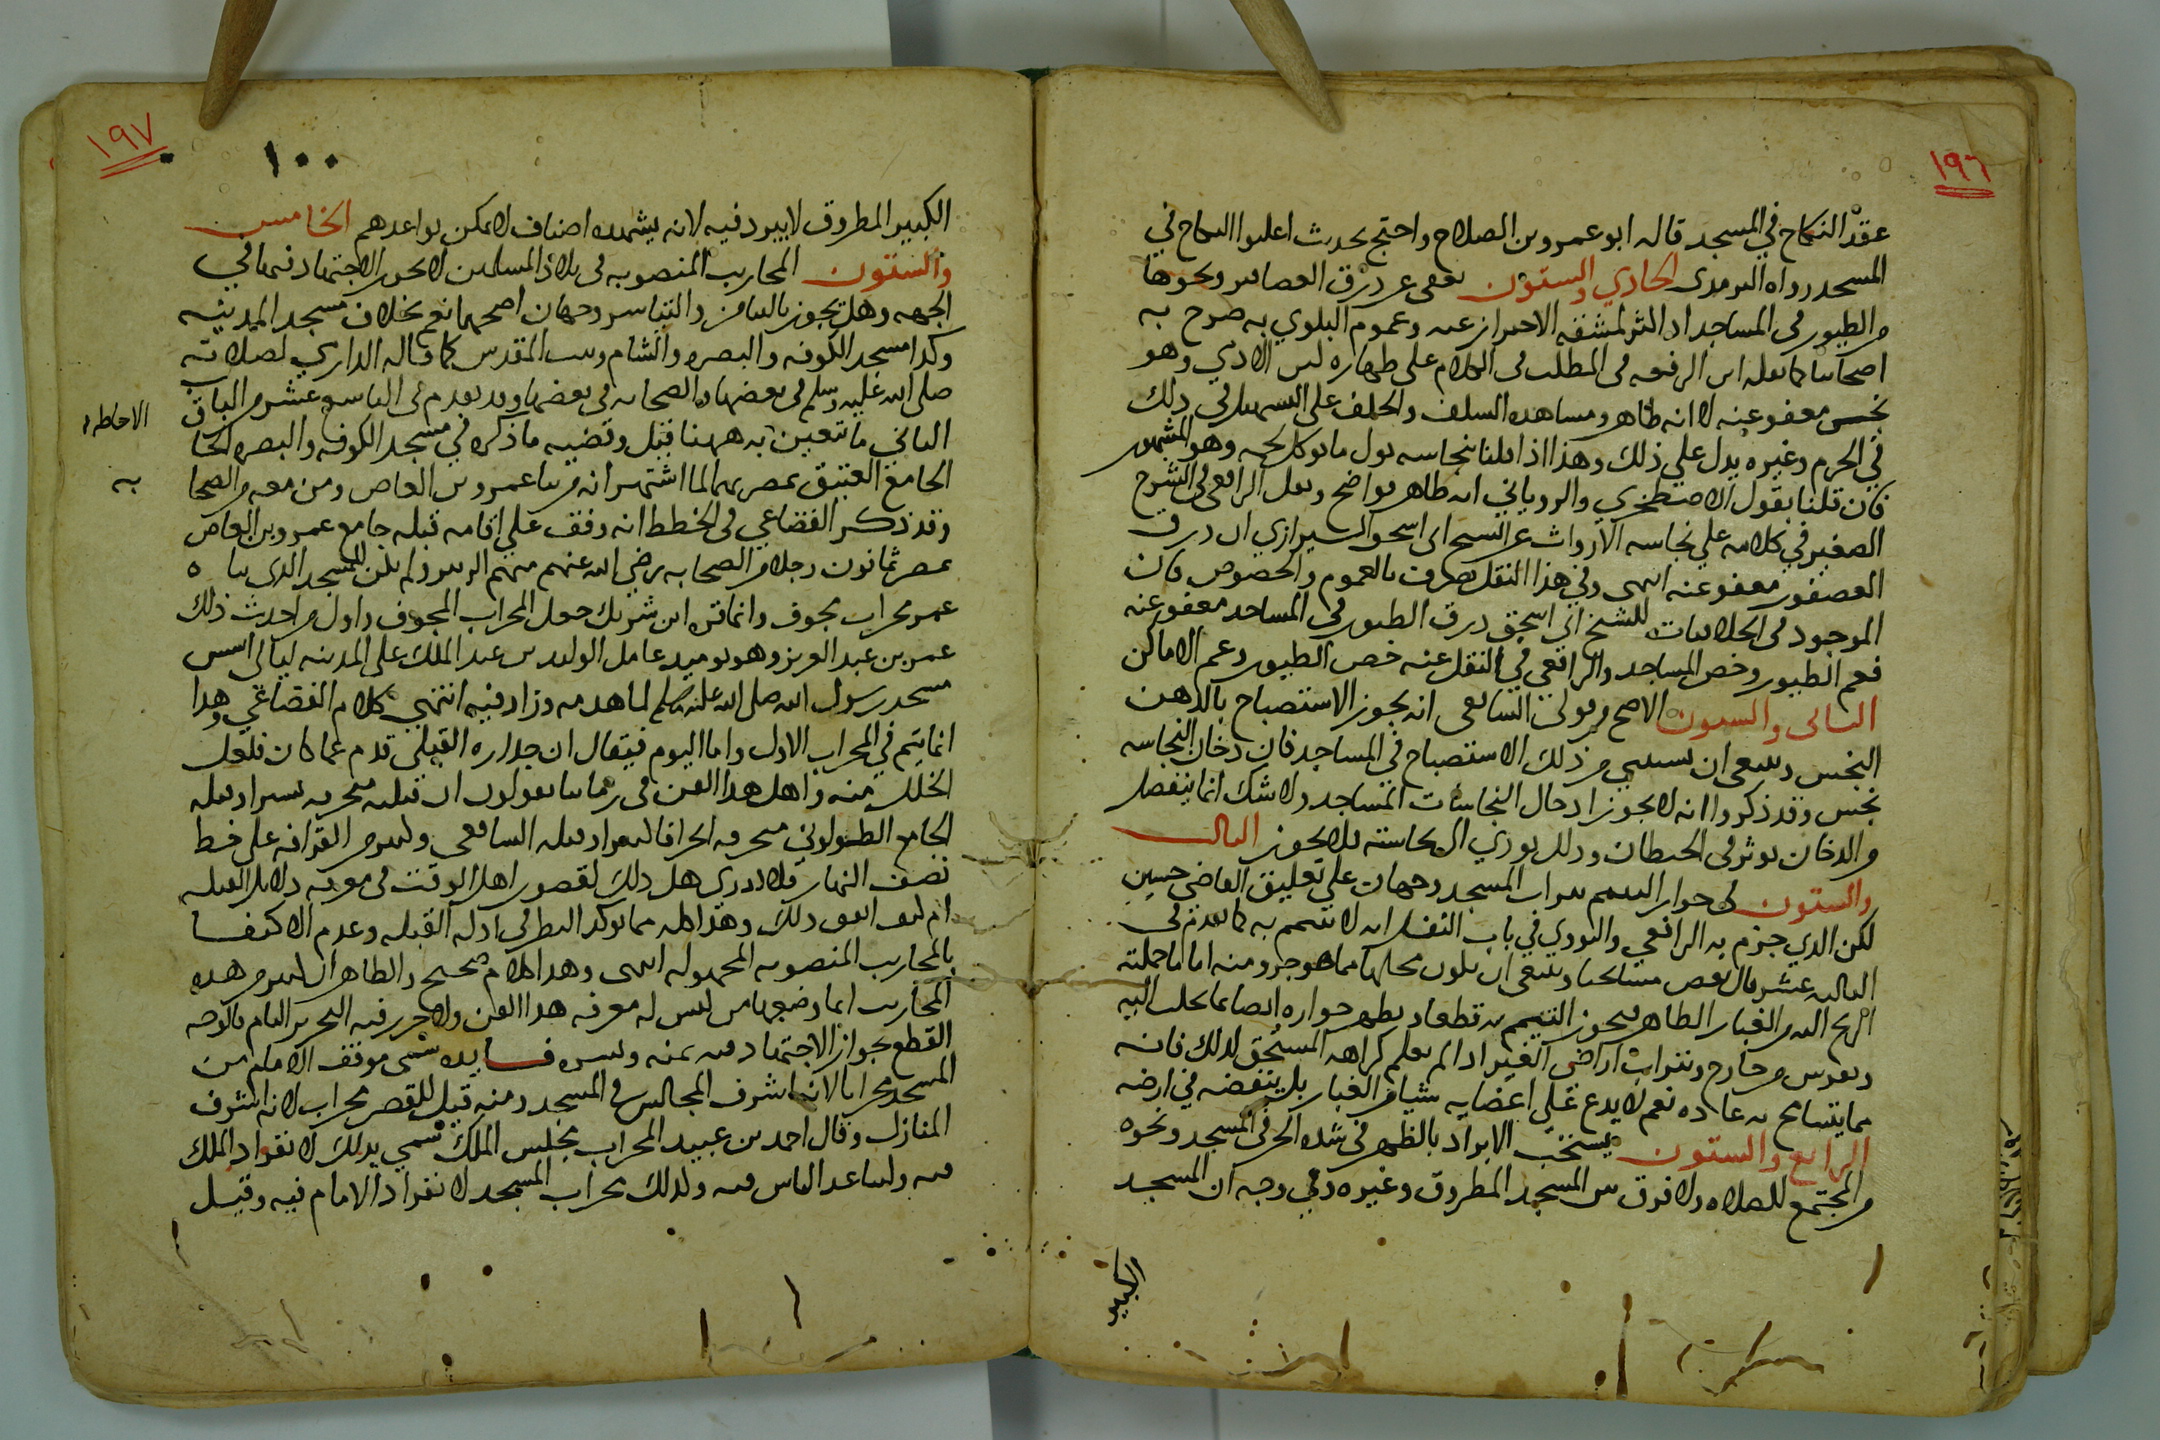 ١٩٦
عقد النكاح في المسجد قاله ابو عمرو بن الصلاح واحتج بحديث اعلنوا النكاح في
المسجد رواه الترمذي الحادي والستون يعفى عن ذرق العصافير ونحوها
من الطيور في المساجد اذا كثر لمشقة الاحتراز عنه وعموم البلوي به صرح به
اصحابنا كما نقله ابن الرفعه في المطلب في الكلام على طهاره لبن الادمي وهو
نجس معفو عنه لا انه طاهر ومشاهده السلف والخلف على التسهيل في ذلك
في الحرم وغيره يدل علي ذلك وهذا اذا قلنا بنجاسه بول مايوكل لحمه وهو المشهور
فان قلنا بقول الاصطخري والروياني انه طاهر فواضح ونقل الرافعي في الشرح
الصغير في كلامه علي نجاسه الارواث عن الشيخ ابي اسحق الشيرازي ان ذرق
العصفور معفو عنه انتهى وفي هذا النقل تصرف بالعموم والخصوص فان
الموجود في الخلافيات للشيخ ابي اسحق ذرق الطيور في المساجد معفو عنه
فعم الطيور وخص المساجد والرافعي في النقل عنه خص الطيور وعم الاماكن
الثاني والستون الاصح من قولي الشافعي انه يجوز الاستصباح بالدهن
النجس وينبغي ان يستثني من ذلك الاستصباح في المساجد فان دخان النجاسه
نجس وقد ذكروا انه لا يجوز ادخال النجاسات المساجد ولا شك انما ينفصل
من الدخان يوثر في الحيطان وذلك يودي الى نجاسته فلا يجوز الثالث
والستون في جواز التيمم بتراب المسجد وجهان علي تعليق القاضي حسين
لكن الذي جزم به الرافعي والنووي في باب التفليس انه لا يتيمم به كما تقدم في
الثالثه عشر قال بعض مشايخنا وينبغي ان يكون محلها مما هو جزء ومنه اما ما حملته
الريح اليه من الغبار الطاهر فيجوز التيمم به قطعا ويظهر جوازه ايضا بما يجلب اليه
ويفرش من خارج وبتراب اراضي الغير اذا لم يعلم كراهه المستحق لذلك فانه
مما يتسامح به عاده نعم لا يدع علي اعضايه شيا من الغبار بل ينفضه في ارضه
الرابع والستون يستحب الابراد بالظهر في شده الحر في المسجد ونحوه
من المجتمع للصلاه ولا فرق بين المسجد المطروق وغيره وفي وجه ان المسجد
الكبير
١٩٧
١٠٠
الكبير المطروق لا يبرد فيه لانه يشهده اصناف لا يمكن تواعدهم الخامس
والستون المحاريب المنصوبه في بلاد المسلمين لا يجوز الاجتهاد فيها في
الجهه وهل يجوز بالتيامن والتياسر وجهان اصحهما نعم بخلاف مسجد المدينه
وكذا مسجد الكوفه والبصره والشام وبيت المقدس كما قاله الداري لصلاته
صلى الله عليه وسلم في بعضها والصحابه في بعضها وقد تقدم في التاسع عشر من الباب
الثاني ما يتعين به ههنا قيل وقضيه ما ذكره في مسجد الكوفه والبصره الحا
الجامع العتيق بمصر بهما لما اشتهر انه من بنا عمرو بن العاص ومن معه من الصحا
به
وقد ذكر القضاعي في الخطط انه وقف علي اقامه قبله جامع عمرو بن العاص
بمصر ثمانون رجلا من الصحابه رضي الله عنهم منهم الزبير ولم يكن للمسجد الذي بناه
عمرو محراب مجوف وانما قره ابن شريك جعل المحراب المجوف واول من احدث ذلك
عمر بن عبد العزيز وهو يوميذ عامل الوليد بن عبد الملك على المدينه ليالي اسس
مسجد رسول الله صلى الله عليه وسلم لما هدمه وزاد فيه انتهي كلام القضاعي وهذا
انما يتم في المحراب الاول واما اليوم فيقال ان جداره القبلي قدم عما كان فلعل
الخلل منه واهل هذا الفن في زماننا يقولون ان قبلته منحرفه يسيرا وقبله
الجامع الطولوني منحرفه انحرافا كثيرا وقبله الشافعي وكثير من القرافه علي خط
نصف النهار فلا ادري هل ذلك لقصور اهل الوقت في معرفه دلايل القبله
ام كيف اتفق ذلك وهذا كله مما يوكد النظر في ادله القبله وعدم الاكتفا
بالمحاريب المنصوبه المجهوله انتهى وهذا كلام صحيح والظاهر ان كثير من هذه
المحاريب انما وضعها من ليس له معرفه هذا الفن ولا حرر فيه التحرير التام فالوجه
القطع بجواز الاجتهاد فيه يمنه ويسره فايده سمى موقف الامام من
المسجد محرابا لانه اشرف المجالس في المسجد ومنه قيل للقصر محراب لانه اشرف
المنازل وقال احمد بن عبيد المحراب مجلس الملك سمي بذلك لانفراد الملك
فيه ولتباعد الناس منه وكذلك محراب المسجد لانفراد الامام فيه وقيل